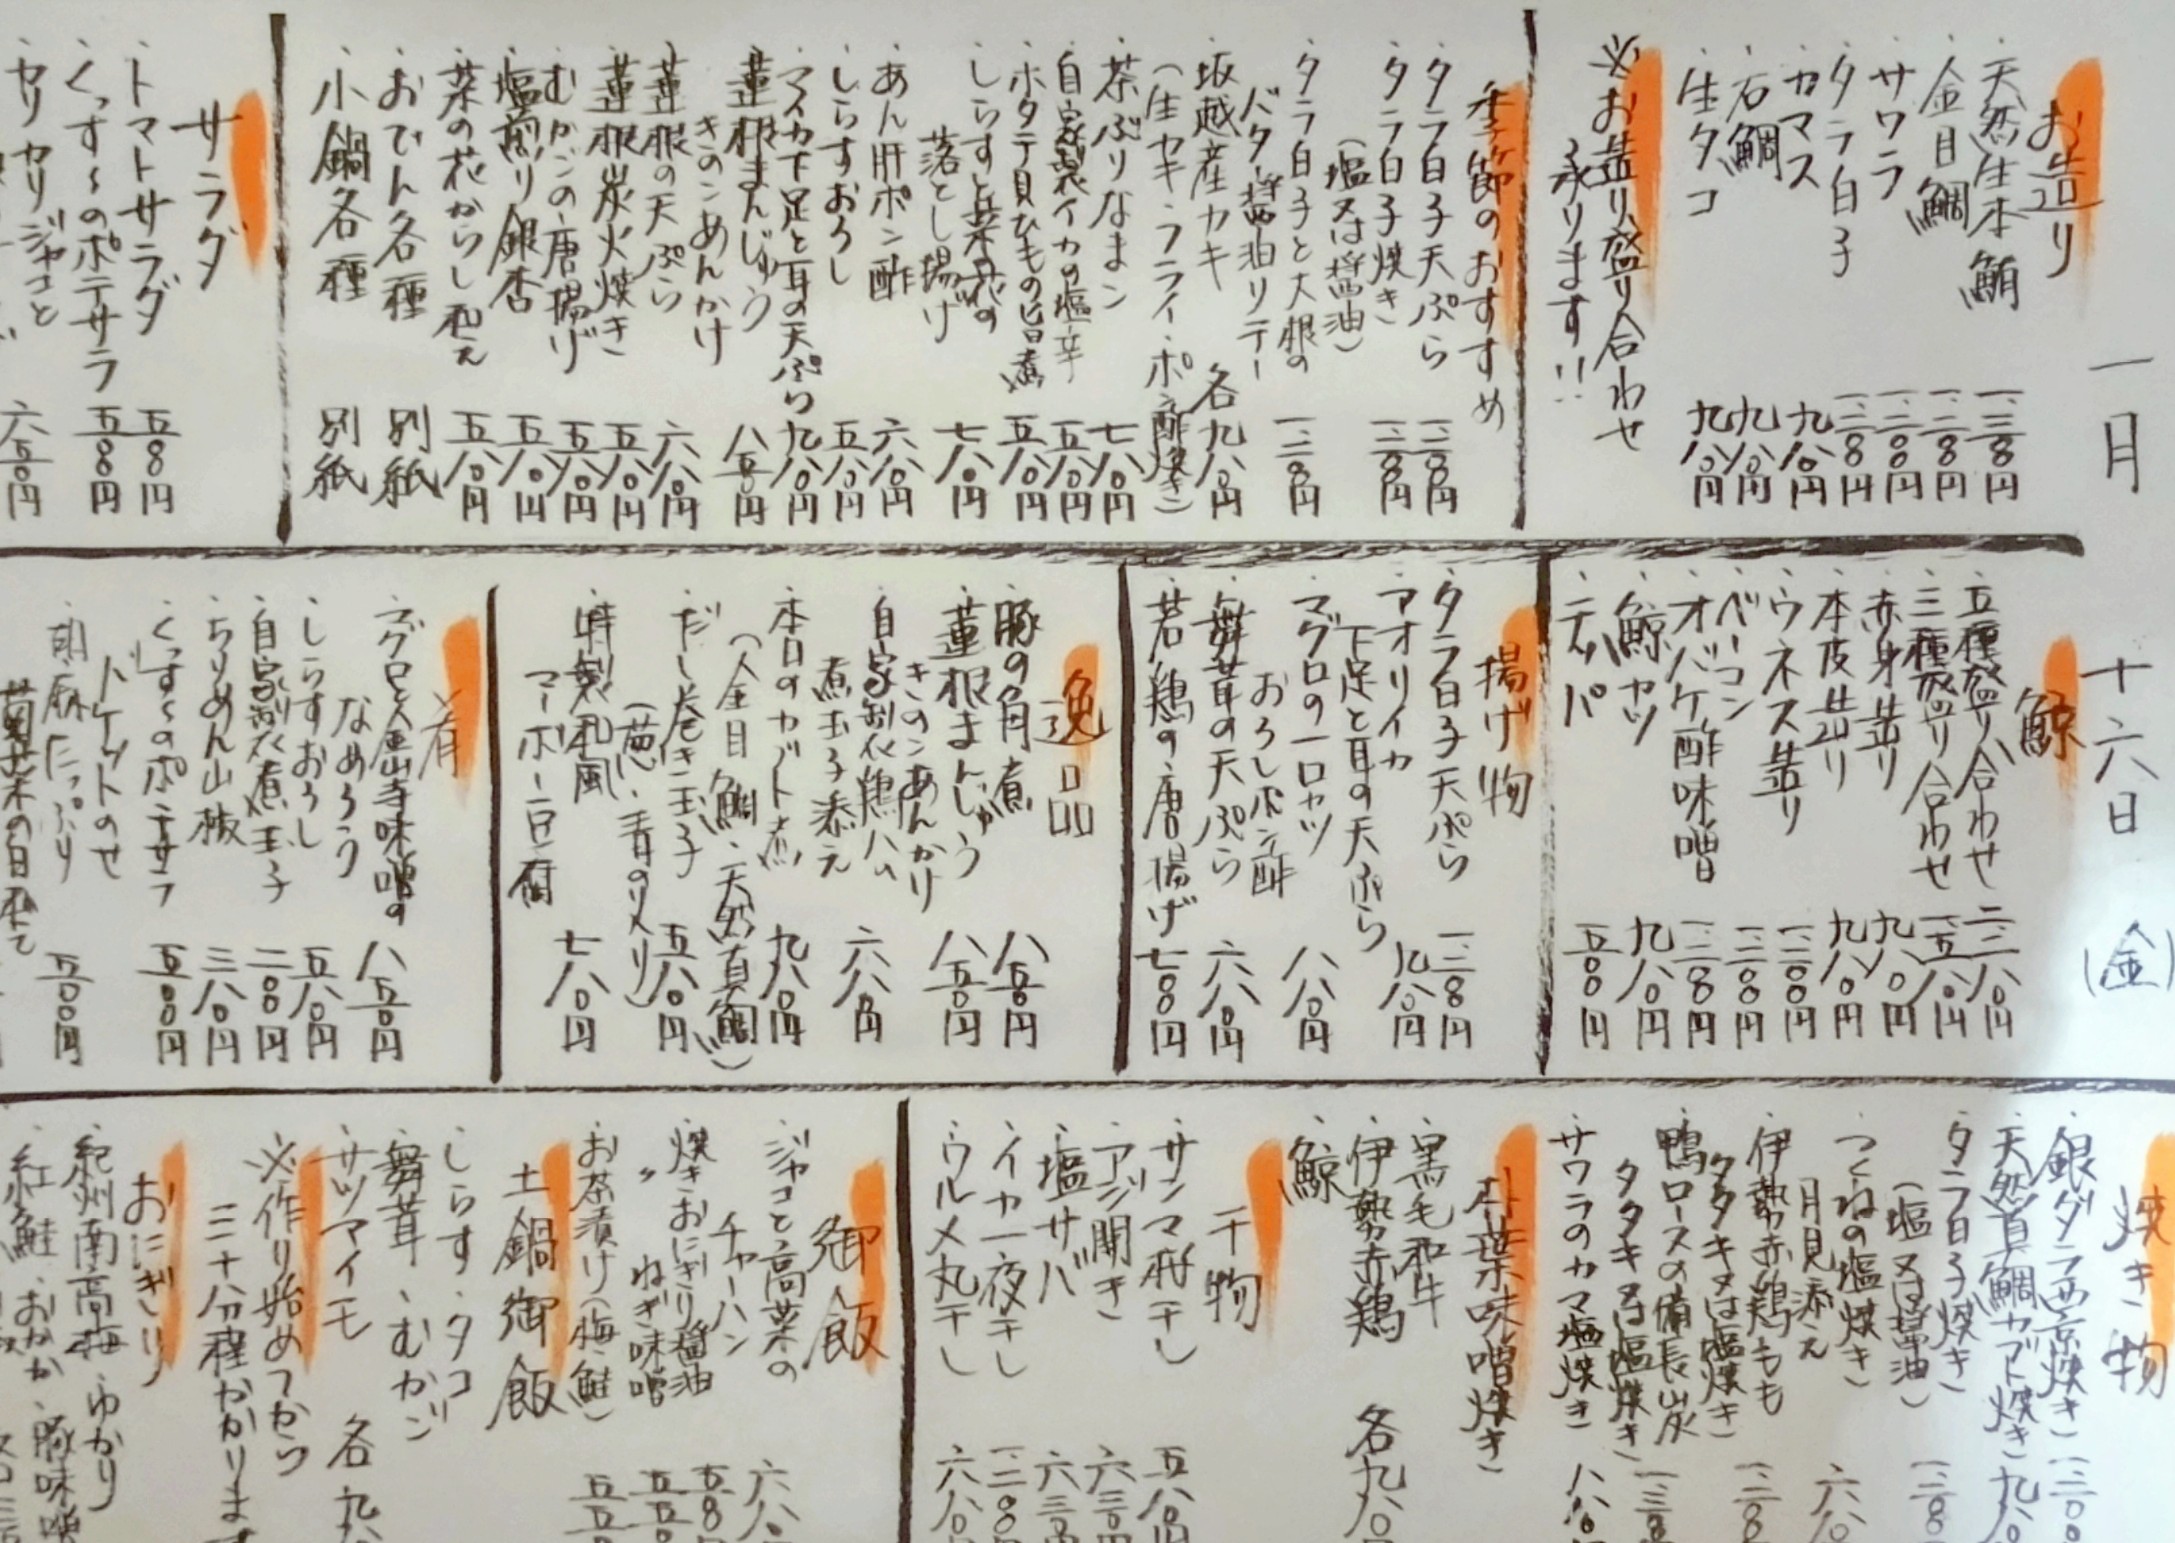 一月 十六日 (金)
お造り
・天然生本鮪 一、三八〇円
・金目鯛 一、三八〇円
・サワラ 一、二八〇円
・タラ白子 一、三八〇円
・カマス 九八〇円
・石鯛 九八〇円
・生タコ 九八〇円
※お造り盛り合わせ
承ります!!
季節のおすすめ
・タラ白子天ぷら 一、三八〇円
・タラ白子焼き 一、三八〇円
(塩又は醤油)
・タラ白子と大根の
バター醤油ソテー 一、二八〇円
・坂越産カキ 各九八〇円
(生カキ・フライ・ポン酢焼き)
・茶ぶりなまこ 七八〇円
・自家製イカの塩辛 五八〇円
・ホタテ貝ひもの旨煮 五八〇円
・しらすと菜の花の
落とし揚げ 七八〇円
・あん肝ポン酢 六八〇円
・しらすおろし 五八〇円
・マイカ下足と耳の天ぷら 九八〇円
・蓮根まんじゅう
きのこあんかけ 八五〇円
・蓮根の天ぷら 六八〇円
・蓮根炭火焼き 五八〇円
・むかごの唐揚げ 五八〇円
・塩煎り銀杏 五八〇円
・菜の花からし和え 五八〇円
・おでん各種 別紙
・小鍋各種 別紙
サラダ
・トマトサラダ 五八〇円
・くっす〜のポテサラ 五八〇円
・セリカリジャコと 六五〇円
鯨
・五種盛り合わせ 二、三八〇円
・三種盛り合わせ 一、五八〇円
・赤身造り 九八〇円
・本皮造り 九八〇円
・ウネス造り 一、二八〇円
・ベーコン 一、二八〇円
・オバケ酢味噌 一、二八〇円
・鯨カツ 九八〇円
・テッパ 五八〇円
揚げ物
・タラ白子天ぷら 一、三八〇円
・アオリイカ
下足と耳の天ぷら 九八〇円
・マグロの一口カツ
おろしポン酢 八八〇円
・舞茸の天ぷら 六八〇円
・若鶏の唐揚げ 七八〇円
逸品
・豚の角煮 八五〇円
・蓮根まんじゅう
きのこあんかけ 八五〇円
・自家製鶏ハム
煮玉子添え 六八〇円
・本日のカブト煮 九八〇円
(金目鯛、天然真鯛)
・だし巻き玉子 五八〇円
(葱・青のり入り)
・特製和風
マーボー豆腐 七八〇円
肴
・マグロと金山寺味噌の
なめろう 八五〇円
・しらすおろし 五八〇円
・自家製煮玉子 二〇〇円
・ちりめん山椒 三八〇円
・くっす〜のポテサラ
バケットのせ 五八〇円
・胡麻たっぷり
菊菜の白和え 五〇〇円
焼き物
・銀ダラ西京焼き 一、三〇〇
・天然真鯛カブト焼き 九八〇
・タラ白子焼き
(塩又は醤油) 一、三八〇
・つくねの塩焼き
月見添え 六八〇
・伊勢赤鶏もも
タタキ又は塩焼き 一、三八〇
・鴨ロースの備長炭
タタキ又は塩焼き 一、三八〇
・サワラのカマ塩焼き 八八〇
朴葉味噌焼き
・黒毛和牛
・伊勢赤鶏 各九八〇円
・鯨
干物
・サンマ桜干し 五八〇円
・アジ開き 六三〇円
・塩サバ 六三〇円
・イカ一夜干し 一、二八〇円
・ウルメ丸干し 六八〇円
御飯
・ジャコと高菜の
チャーハン 六八〇
・焼きおにぎり醤油 五八〇
・〃 ねぎ味噌 五五〇
・お茶漬け(梅・鮭) 五五〇
土鍋御飯
・しらす・タコ
・舞茸・むかご
・サツマイモ 各九八
※作り始めてから
三十分程かかります
おにぎり
・紀州南高梅・ゆかり
・紅鮭・おかか・豚味噌